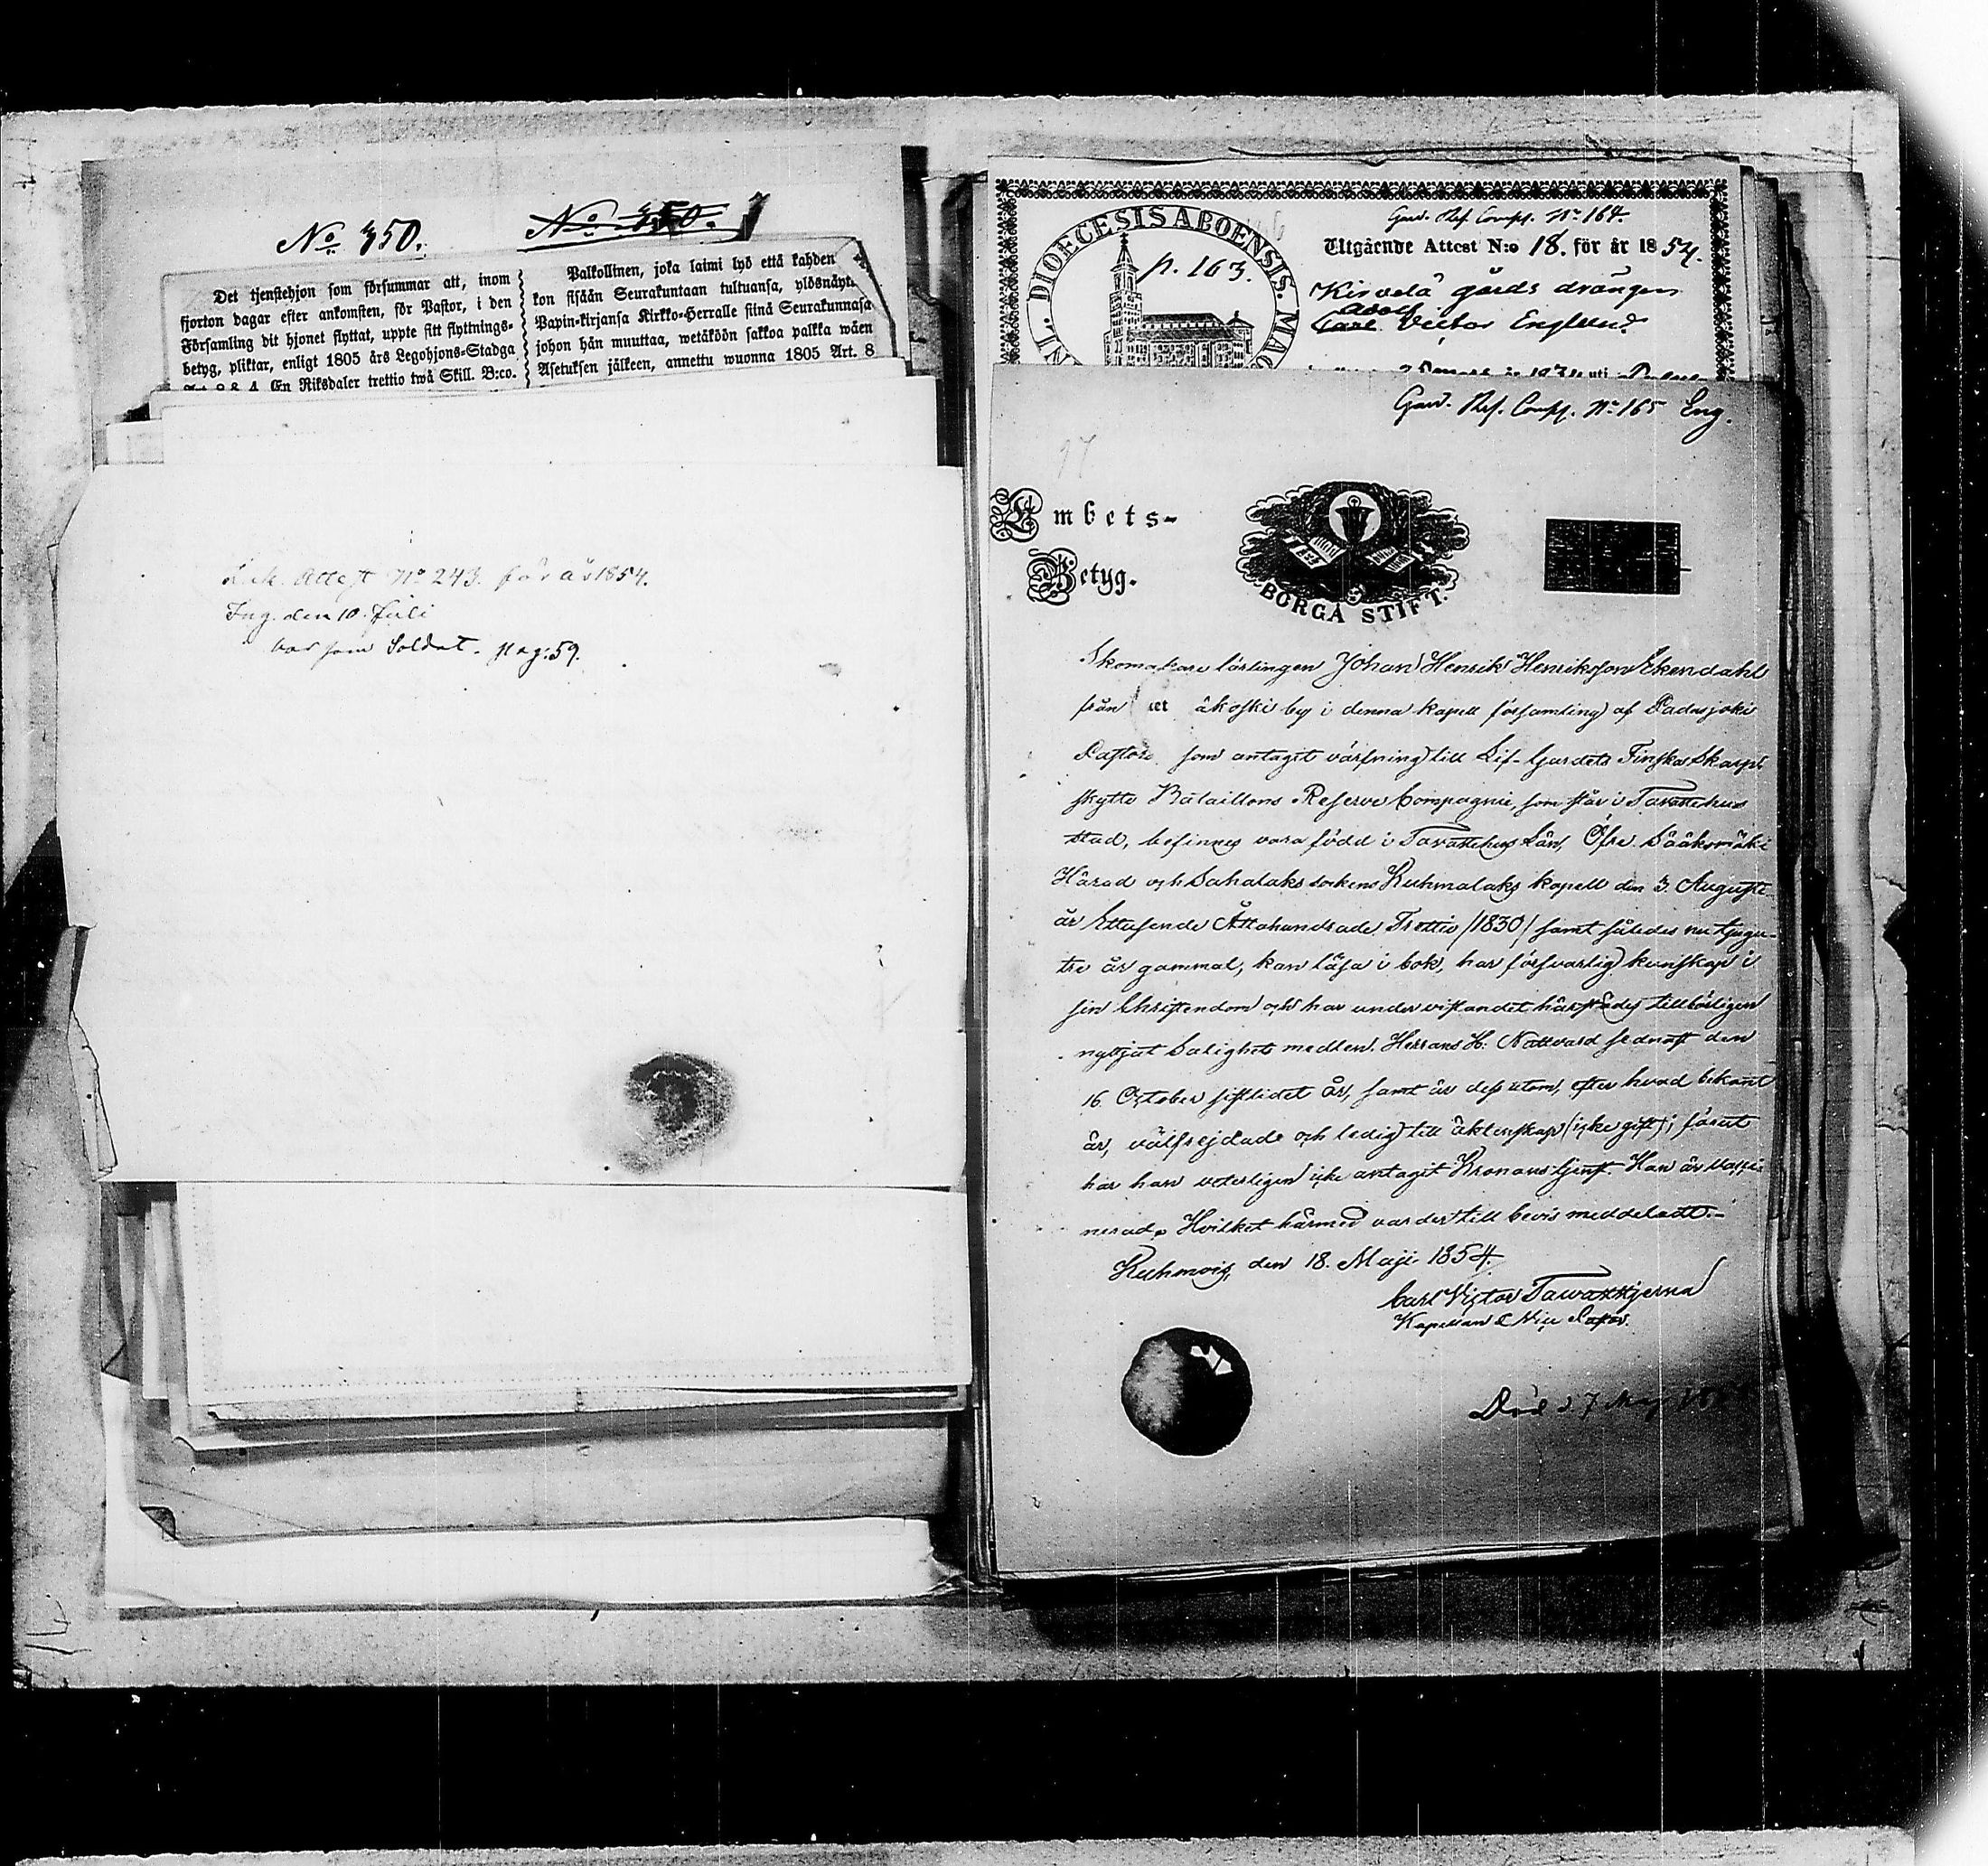 No 350.
No 350.
Det tjenstehjon som försummar att, inom
fjorton dagar efter ankomsten, för Pastor, i den
Församling dit hjonet flyttat, uppte sitt flyttnings-
betyg, pliktar, enligt 1805 års Legohjons-Stadga
En Riksdaler trettio twå Skill. B:co.
Palkollinen, joka laimi lyö että kahden
kon sisään Seurakuntaan tultuansa, ylösnäytt
Papin-kirjansa Kirkko-Herralle siinä Seurakunnasa
johon hän muuttaa, wetäköön sakkoa palkka wäen
Asetuksen jälkeen, annettu wuonna 1805 Art. 8
Attest No 243. för år 1854.
Ing. den 10. Juli
som Soldat. pag: 59.
DIOECESIS ABOENSIS. MAG
p. 163.
Gard. Ref. Comp. No 164.
Utgående Attest N:o 18. för år 1854.
Kirvelä gårds drängen
Adolf
Carl Victor Englund
Gard. Ref. Comp. No 165 Eng.
97
Embets-
Betyg.
BORGÅ STIFT.
Skomakare lärlingen Johan Henrik Henriksson Ekendahl
från åkoski by i denna kapell församling af Padasjoki
Pastorat som antagit värfning till Lif-Gardets Finska Skarp-
skytte Bataillons Reserve Compagnie, som står i Tavastehus
stad, befinnes vara född i Tavastehus Län, Öfre Sääksmäki
Härad och Sahalaks sockens Kuhmalaks kapell den 3. Augusti
år Ettusende Åttahundrade Trettio (1830) samt således nu tjugu-
tre år gammal, kan läsa i bok, har försvarlig kunskap i
sin Christendom och har under vistandet härstädes tillbörligen
nyttjat Salighets medlen. Herrans H: Nattvard sednast den
16. October sistlidet år, samt är dess utom, efter hvad bekant
är, välfrejdade och ledig till äktenskap (icke gift); förut
har han veterligen icke antagit Kronans tjenst. Han är vacci-
nerad. Hvilket härmed varder till bevis meddeladt.-
Kuhmois, den 18. Maji 1854.
Carl Victor Tawaststjerna
Kapellan & Vice Pastor.
Död 27 Maj